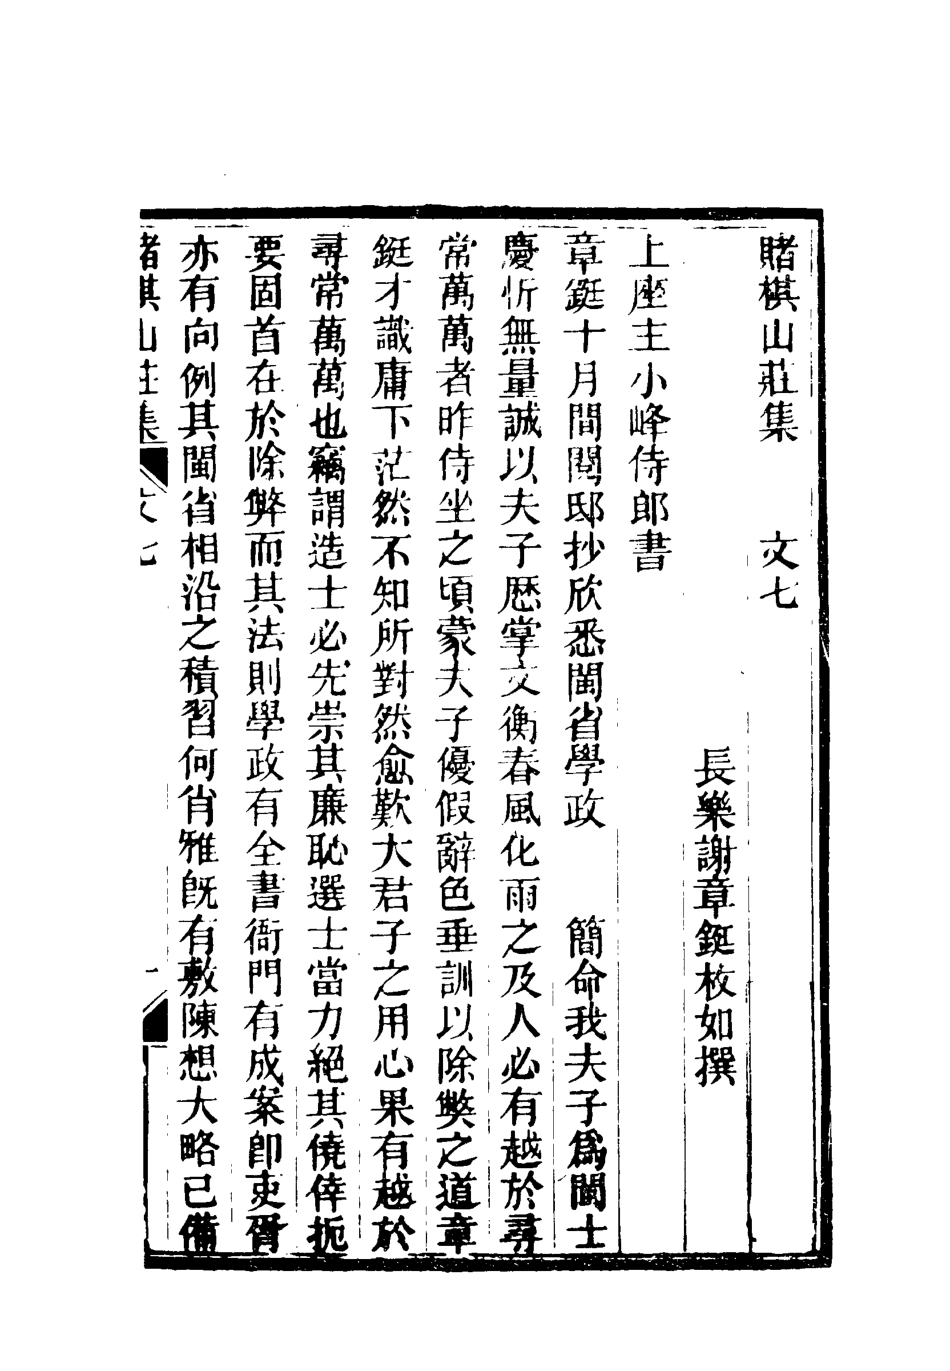 賭棋山莊集　文七
長樂謝章鋌枚如撰
上座主小峰侍郎書
章鋌十月間閱邸抄欣悉閩省學政　簡命我夫子爲閩士
慶忻無量誠以夫子歷掌文衡春風化雨之及人必有越於尋
常萬萬者昨侍坐之頃蒙夫子優假辭色垂訓以除弊之道章
鋌才識庸下茫然不知所對然愈歎大君子之用心果有越於
尋常萬萬也竊謂造士必先崇其廉恥選士當力絕其僥倖扼
要固首在於除弊而其法則學政有全書衙門有成案卽吏胥
亦有向例其閩省相沿之積習何肖雅旣有敷陳想大略已備
賭棋山莊集　文七　一